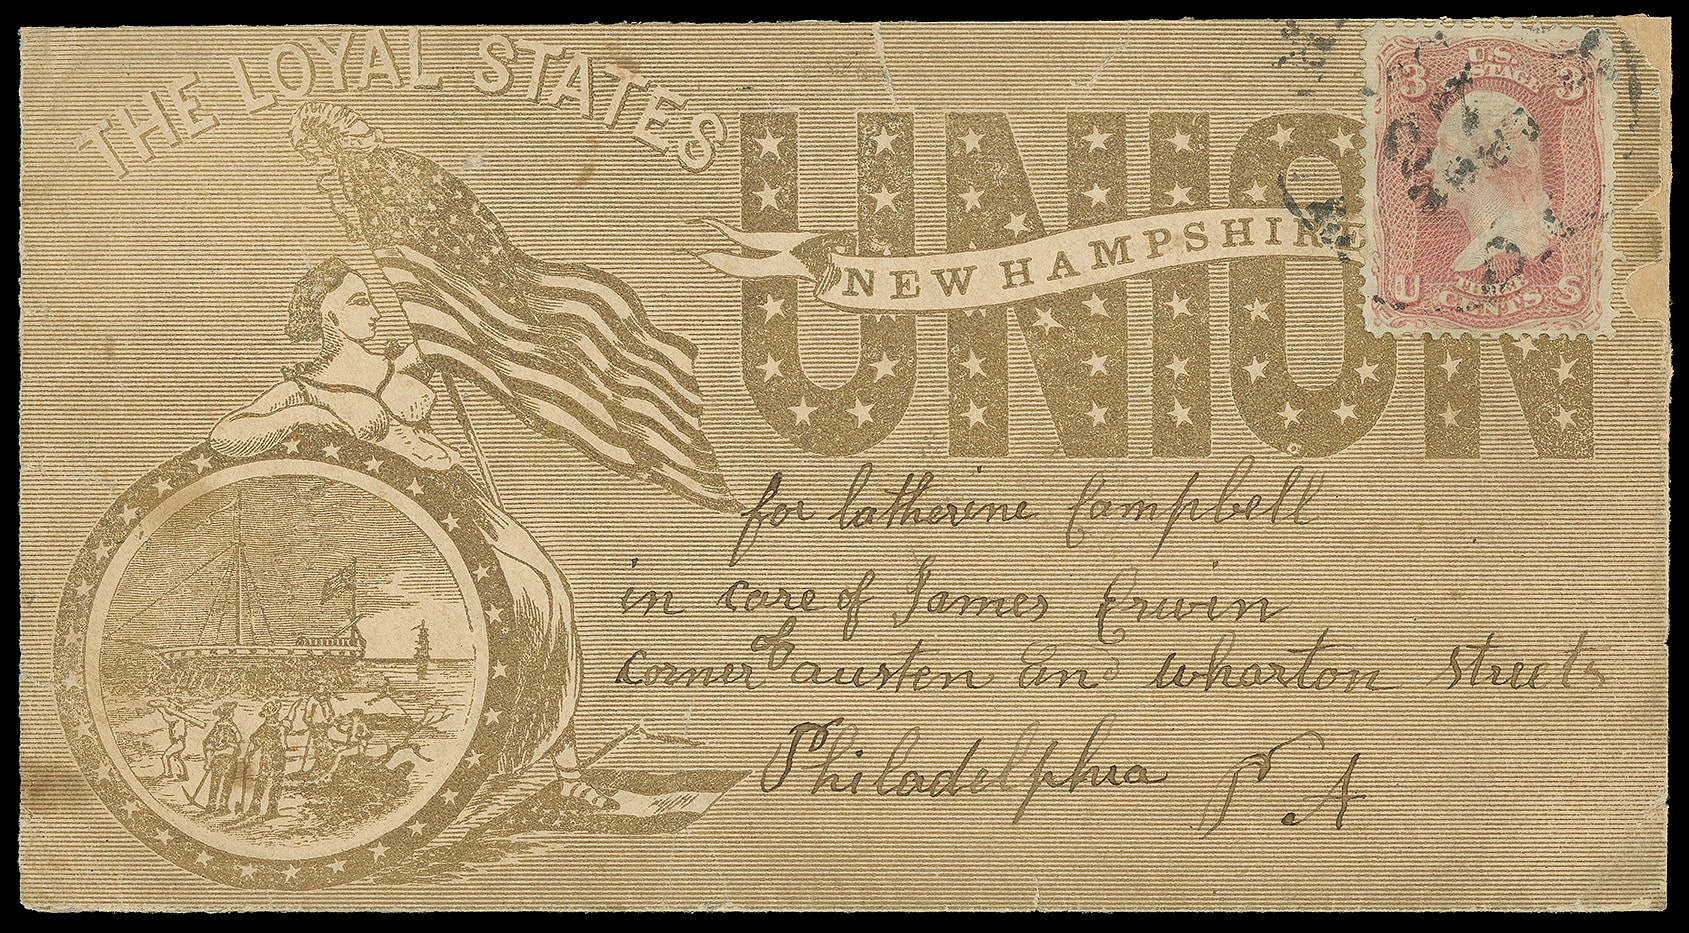 THE LOYAL STATES
UNION
NEW HAMPSHIRE
3 U.S. POSTAGE 3
U THREE CENTS S
for Catherine Campbell
in care of James Erwin
corner of austen and wharton streets
Philadelphia PA